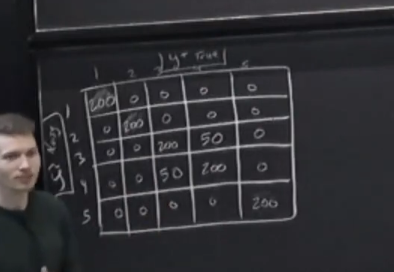 y = True
1 2 5
1 200 0 0 0 0
2 0 200 0 0 0
3 0 0 200 50 0
4 0 0 50 200 0
5 0 0 0 0 200
ŷ